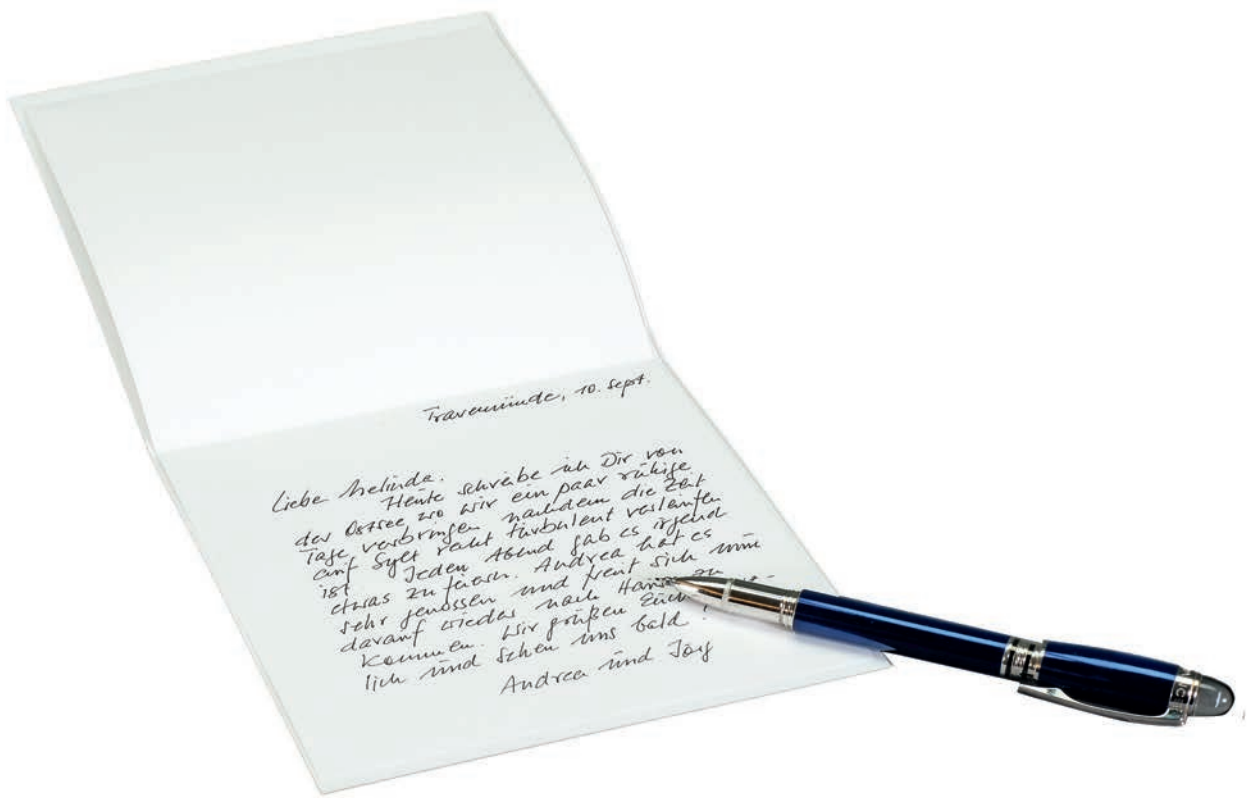 Travemünde, 10. Sept.
Liebe Melinda.
Heute schreibe ich Dir von
der Ostsee wo wir ein paar ruhige
Tage verbringen nachdem die Zeit
auf Sylt recht turbulent verlaufen
ist. Jeden Abend gab es irgend
etwas zu feiern. Andrea hat es
sehr genossen und freut sich nun
darauf wieder nach Hause zu
kommen. Wir grüßen Euch
lich und sehen uns bald!
Andrea und Jörg